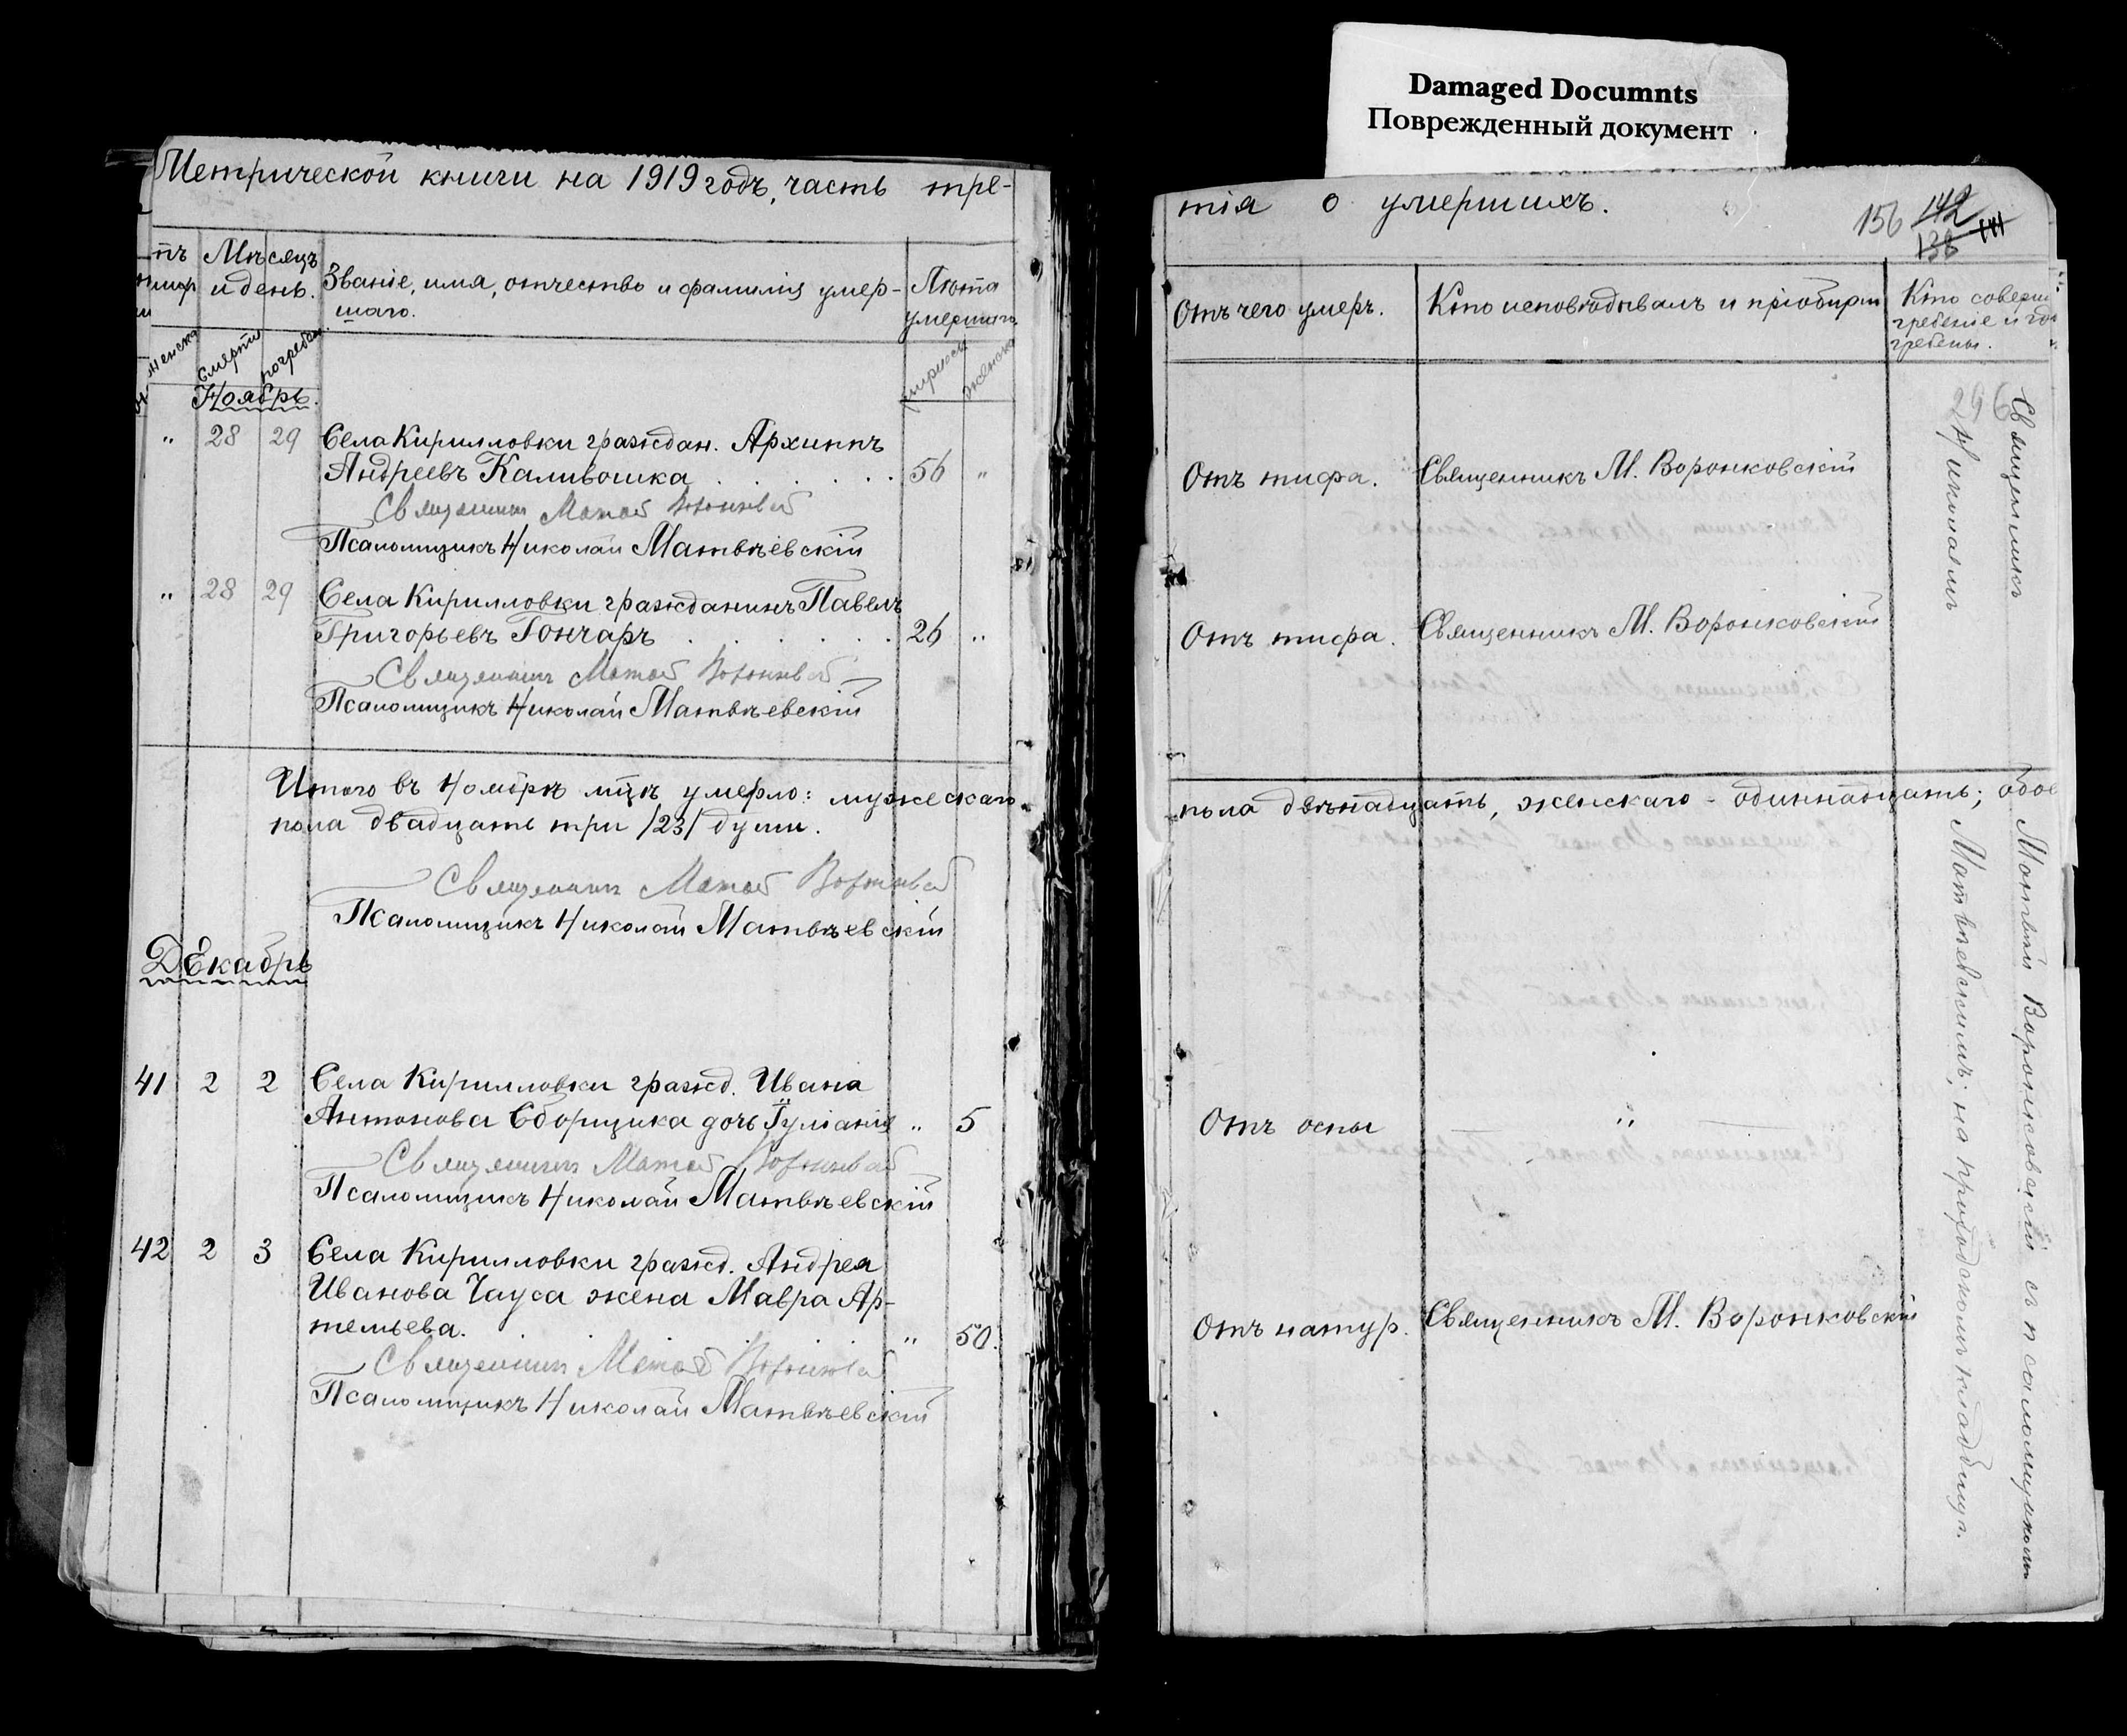 Damaged Documnts
Поврежденный документ
Метрической книги на 1919 годъ, часть тре-
Мѣсяцъ
и день.
Званіе, имя, отчество и фамилія умер-
шаго.
Лѣта
умершаго.
женска
смерти
погребен.
мужеска
женска
Ноябрь.
" 28 29 Села Кирилловки граждан. Архиппъ
Андреевъ Каливошка . . . . . . 56 "
Священникъ Матвей
Псаломщикъ Николай Матвѣевскій
" 28 29 Села Кирилловки гражданинъ Павелъ
Григорьевъ Гончаръ . . . . . . 26 "
Священникъ Матвей
Псаломщикъ Николай Матвѣевскій
Итого въ Ноябрѣ мцѣ умерло: мужескаго
пола двадцать три /23/ души.
Священникъ Матвей
Псаломщикъ Николай Матвѣевскій
Декабрь
41 2 2 Села Кирилловки гражд. Ивана
Антонова Сборщика дочь Іуліанія " 5
Священникъ Матвей
Псаломщикъ Николай Матвѣевскій
42 2 3 Села Кирилловки гражд. Андрея
Иванова Чауса жена Мавра Ар-
темьева. " 50.
Священникъ Матвей
Псаломщикъ Николай Матвѣевскій
тія о умершихъ.
156 142
138 141
Отъ чего умеръ.
Кто исповѣдывалъ и пріобщи
Кто соверш
гребеніе и гдѣ
гребены.
296
Отъ тифа. Священникъ М. Воронковскій
Отъ тифа. Священникъ М. Воронковскій
пола двѣнадцать, женскаго - одиннадцать; обое
Отъ оспы "
Отъ натур. Священникъ М. Воронковскій
Священникъ Матвѣй Воронковскій съ псаломщикомъ
Николаемъ Матвѣевскимъ; на приходскомъ кладбищѣ.